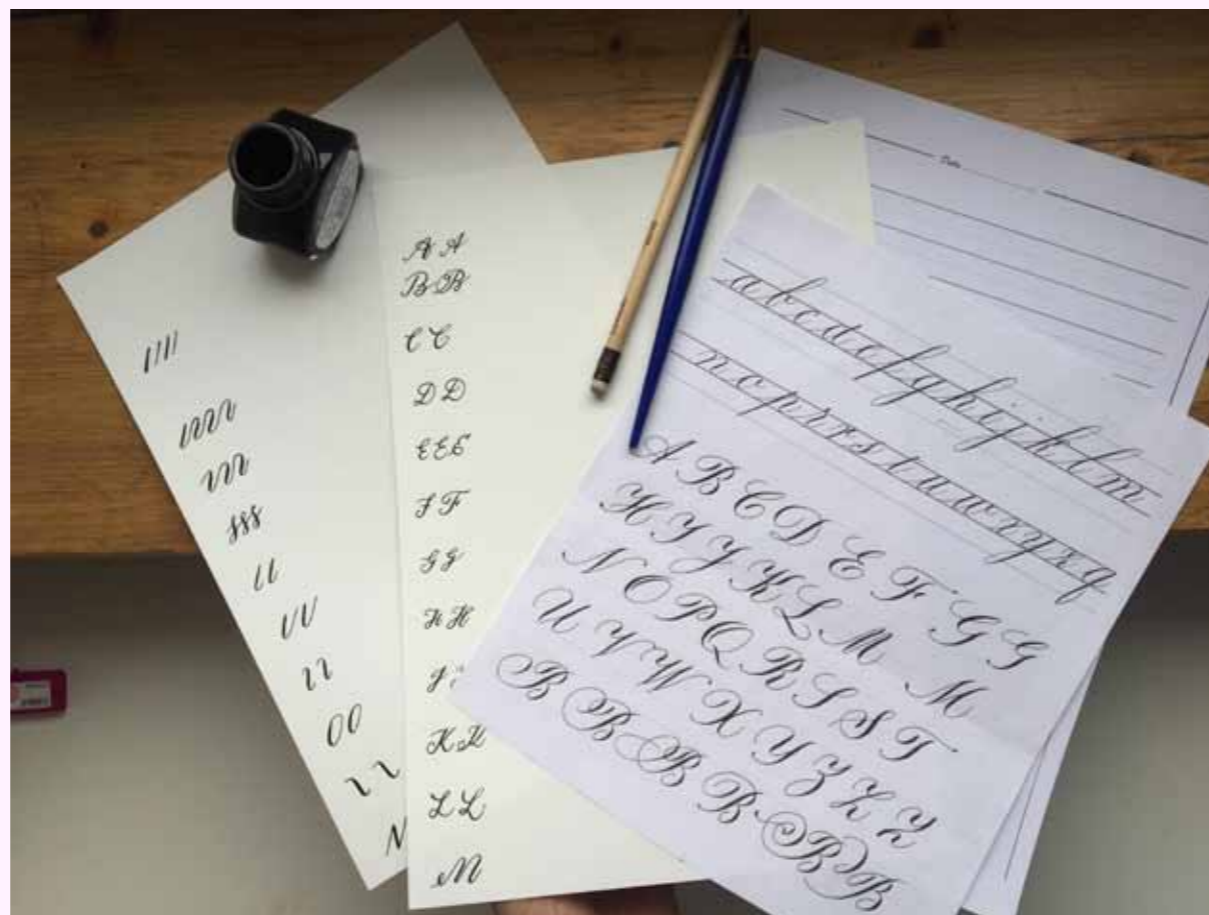 A A
B B
C C
D D
E E E
F F
G G
H H
J
K K
L L
M
Date
a b c d e f g h i j k l m
n o p r r s t u w x y z q
A B C D E F G G
H I J K L M M
N O P Q R S S T
U V W X Y Z Z Z
B B B B B B